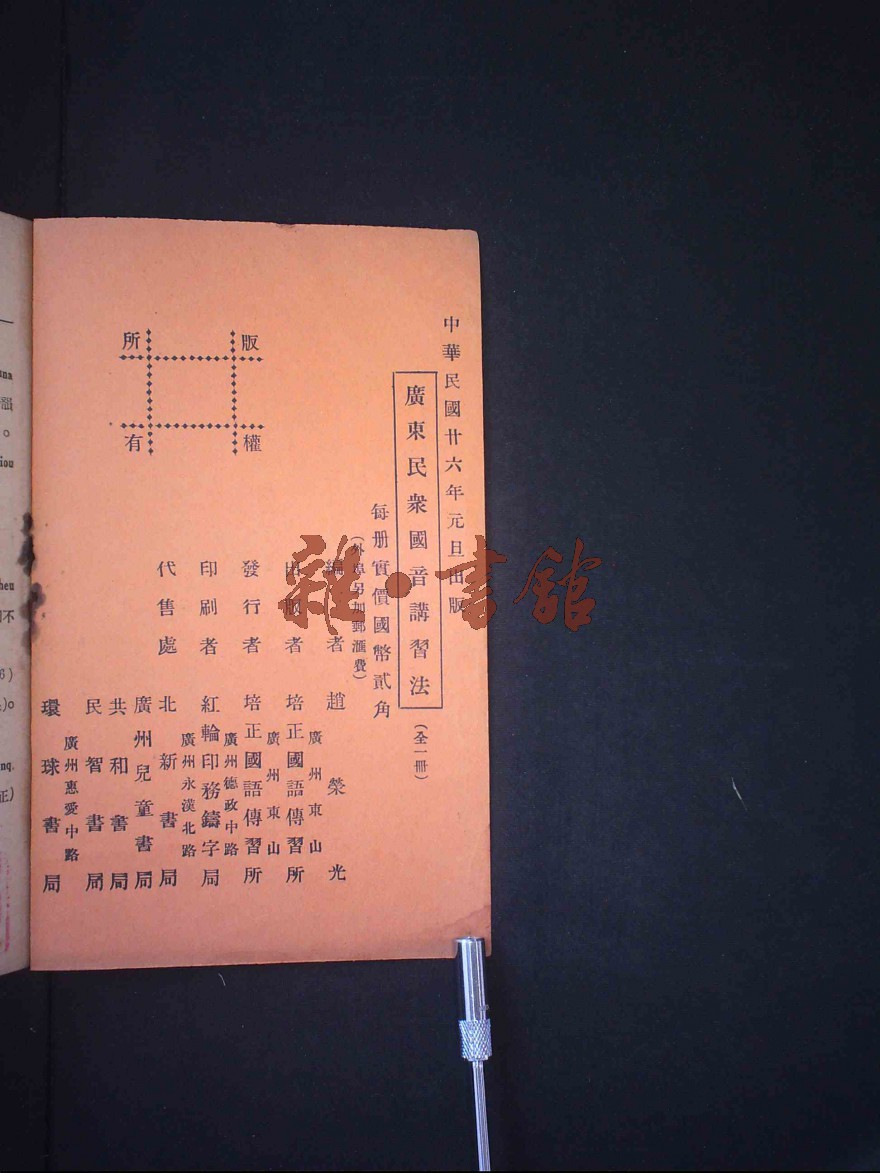 中華民國廿六年元旦出版
廣東民衆國音講習法
(全一冊)
每册實價國幣貳角
(外埠另加郵滙費)
編者 趙榮光
廣州東山
出版者 培正國語傳習所
廣州東山
發行者 培正國語傳習所
廣州德政中路
印刷者 紅輪印務鑄字局
廣州永漢北路
代售處 北新書局
廣州兒童書局
共和書局
民智書局
廣州惠愛中路
環球書局
版權所有
雜·書館